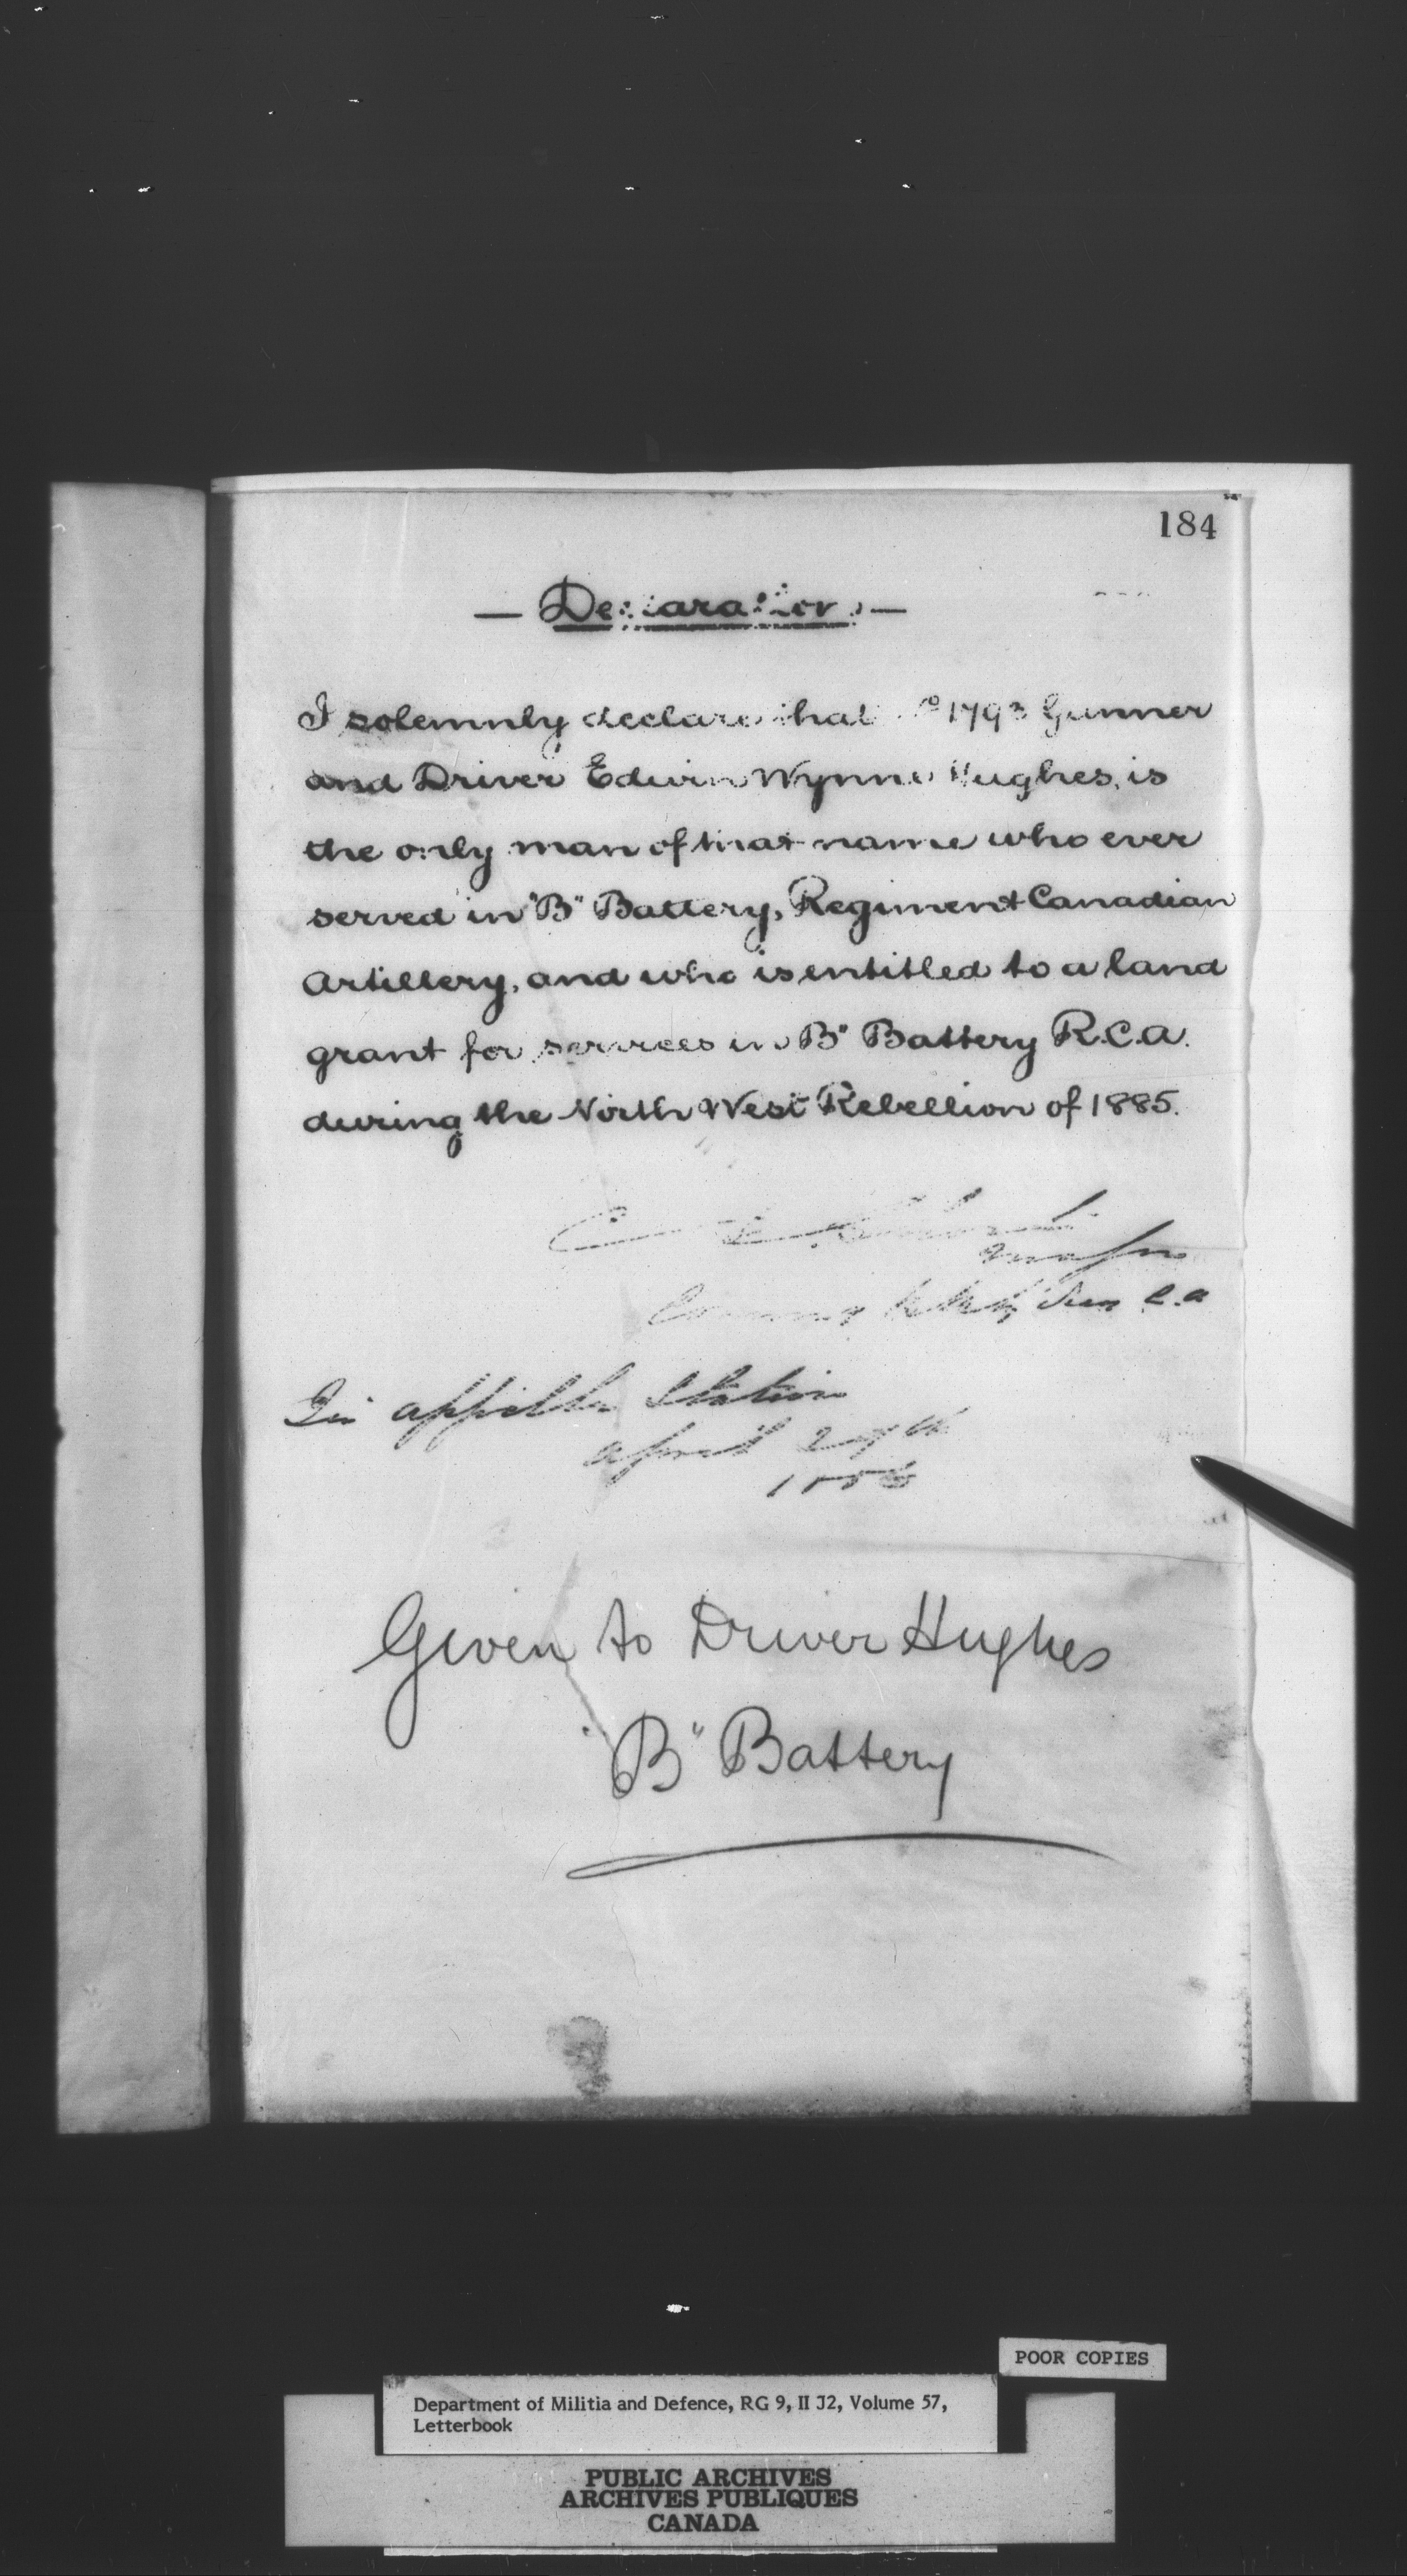 184
— Declaration —
I solemnly declare that No 1793 Gunner
and Driver Edwin Wynne Hughes, is
the only man of that name who ever
served in "B" Battery, Regiment Canadian
Artillery, and who is entitled to a land
grant for services in "B" Battery R.C.A.
during the North West Rebellion of 1885.
Major
C.A
Qu'appelle Station
April 27th
Given to Driver Hughes
"B" Battery
POOR COPIES
Department of Militia and Defence, RG 9, II J2, Volume 57,
Letterbook
PUBLIC ARCHIVES
ARCHIVES PUBLIQUES
CANADA